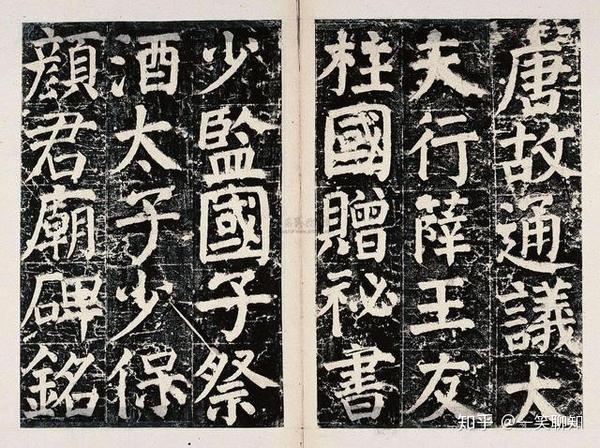 唐故通議大
夫行薛王友
柱國贈祕書
少監國子祭
酒太子少保
顏君廟碑銘
知乎 @一笑聊知